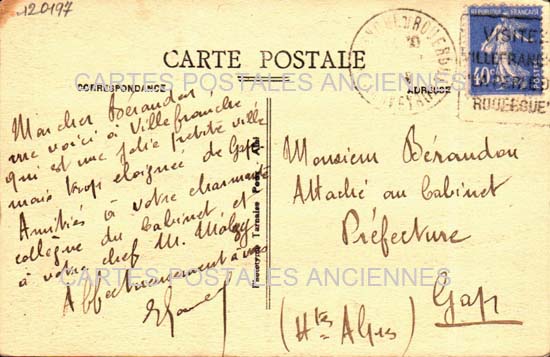 120197
CARTE POSTALE
CARTES POSTALES ANCIENNES
CORRESPONDANCE
ADRESSE
Mon cher Bérandon,
me voici à Villefranche
qui est une jolie petite ville
mais trop éloignée de Gap.
Amitiés à votre charmante
collègue du Cabinet et
à votre chef M.
Affectueusement à vous
Phototypie Tarnaise Poux, Albi
Monsieur Bérandon
Attaché au Cabinet
Préfecture
Gap
(Htes Alpes)
CARTES POSTALES ANCIENNES
REPUBLIQUE FRANÇAISE
40
VISITEZ
VILLEFRANCHE
ROUERGUE